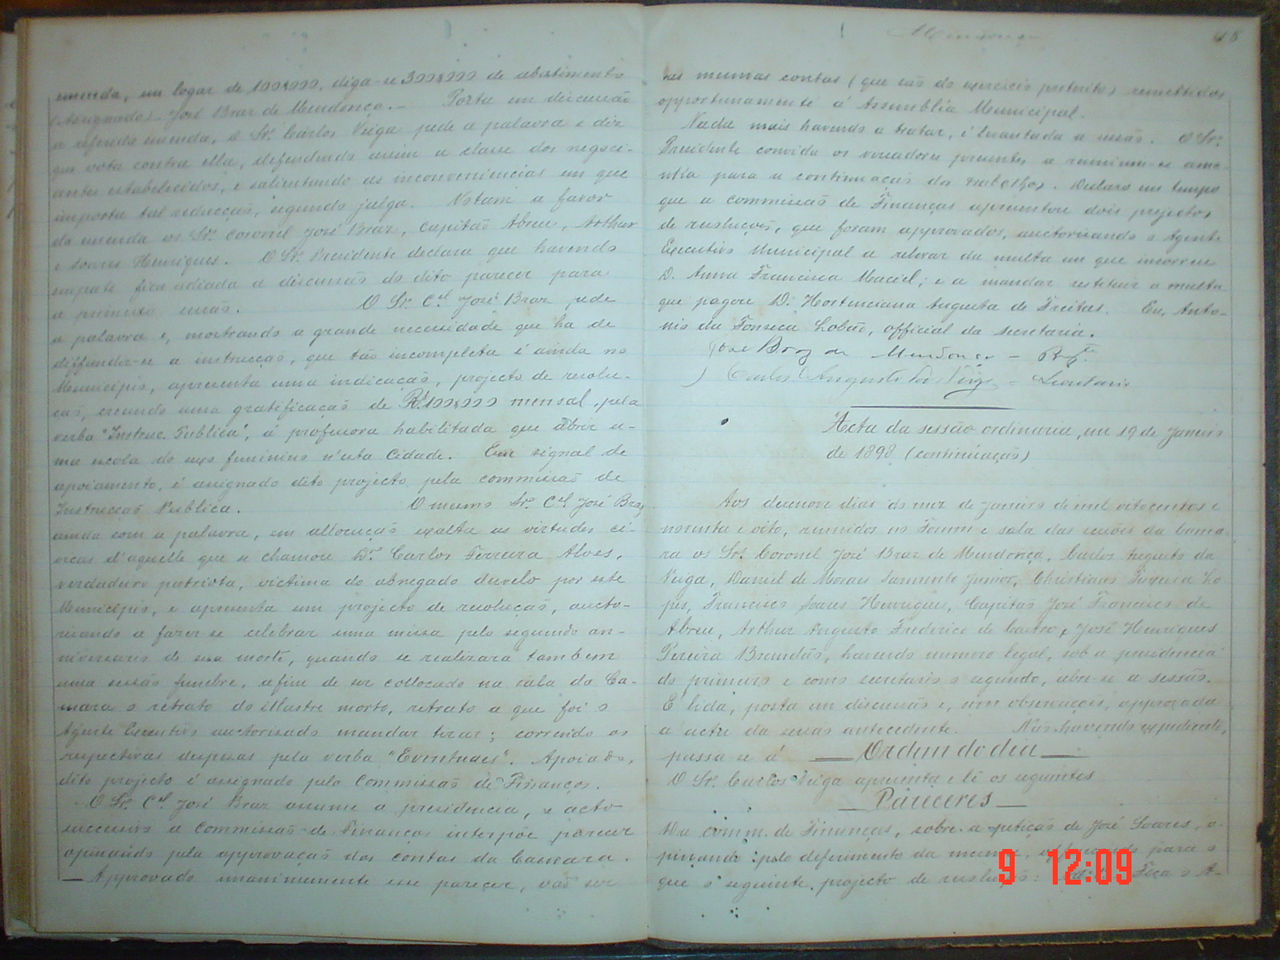 emenda, em logar de 100$000, diga-se 300$000 de abatimento
(Assignado) José Braz de Mendonça. — Posta em discussão
a referida emenda, o Sr. Carlos Veiga pede a palavra e diz
que vota contra ella, defendendo assim a classe dos negoci-
antes estabelecidos, e salientando as inconveniencias em que
importa tal reducção, segundo julga. Votam a favor
da emenda os Srs. Coronel José Braz, Capitão Abreu, Arthur
e Soares Henriques. O Sr. Presidente declara que havendo
empate fica adiada a discussão do dito parecer para
a proxima sessão. O Sr. Cel. José Braz pede
a palavra e, mostrando a grande necessidade que ha de
diffundir-se a instrucção, que tão incompleta é ainda no
Municipio, apresenta uma indicação, projecto de resolu-
ção, creando uma gratificação de Rs. 100$000 mensal, pela
verba "Instruc. Publica", á professora habilitada que abrir u-
ma escola do sexo feminino n'esta Cidade. Em signal de
apoiamento, é assignado dito projecto pela commissão de
Instrucção Publica. O mesmo Sr. Cel. José Braz
ainda com a palavra, em allocução exalta as virtudes ci-
vicas d'aquelle que se chamou Dr. Carlos Ferreira Alves,
verdadeiro patriota, victima do abnegado desvelo por este
Municipio, e apresenta um projecto de resolução, aucto-
risando a fazer-se celebrar uma missa pelo segundo an-
niversario de sua morte, quando se realizará tambem
uma sessão funebre, afim de ser collocado na sala da Ca-
mara o retrato do illustre morto, retrato a que foi o
Agente Executivo auctorisado mandar tirar; correndo as
respectivas despesas pela verba "Eventuaes". Apoiado,
dito projecto é assignado pela Commissão de Finanças.
O Sr. Cel. José Braz assume a presidencia, e acto
successivo a Commissão de Finanças interpõe parecer
opinando pela approvação das contas da Camara.
— Approvado unanimemente esse parecer, vão ser
as mesmas contas (que são do exercicio preterito) remettidas
opportunamente á Assembléa Municipal.
Nada mais havendo a tratar, é levantada a sessão. O Sr.
Presidente convida os vereadores presentes a reunirem-se ama-
nhã para a continuação dos trabalhos. Declaro em tempo
que a commissão de Finanças apresentou dois projectos
de resolução, que foram approvados, auctorisando o Agente
Executivo Municipal a relevar da multa em que incorreu
D. Anna Francisca Maciel; e a mandar restituir a multa
que pagou D. Hortenciana Augusta de Freitas. Eu, Anto-
nio da Fonseca Lobão, official da secretaria.
José Braz de Mendonça — Presidente
Carlos Augusto da Veiga = Secretario
Acta da sessão ordinaria, em 19 de Janeiro
de 1898 (continuação)
Aos dezenove dias do mez de Janeiro de mil oitocentos e
noventa e oito, reunidos no Forum e sala das sessões da Cama-
ra os Srs. Coronel José Braz de Mendonça, Carlos Augusto da
Veiga, Daniel de Moraes Sarmento Junior, Christiano Lo-
pes, Francisco Soares Henriques, Capitão José Francisco de
Abreu, Arthur Augusto Frederico de Castro, e José Henriques
Pereira Brandão, havendo numero legal, sob a presidencia
do primeiro e como secretario o segundo, abre-se a sessão.
É lida, posta em discussão e, sem observação, approvada
a acta da sessão antecedente. Não havendo expediente,
passa-se á — Ordem do dia —
O Sr. Carlos Veiga apresenta e lê os seguintes
— Pareceres —
Da comm. de Finanças, sobre a petição de José Soares, o-
pinando pelo deferimento da mesma, para o
que o seguinte projecto de resolução: Faça o A-
9 12:09